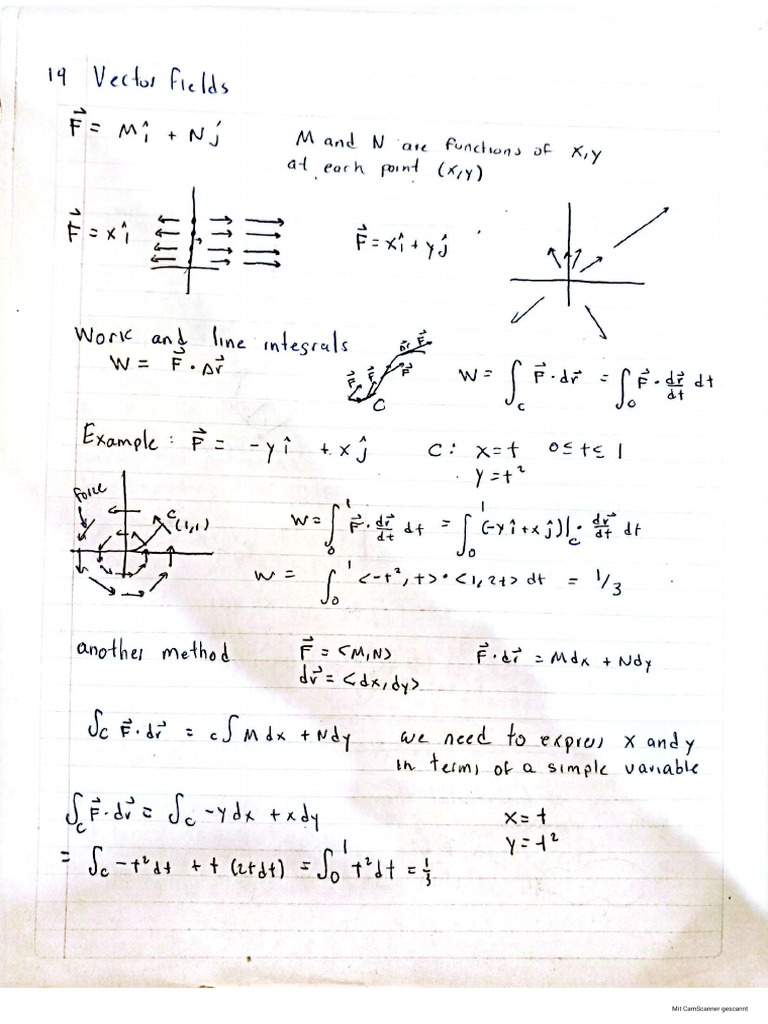 19 Vector Fields
F⃗ = Mî + Nĵ
M and N are functions of x,y
at each point (x,y)
F⃗ = xî
F⃗ = xî + yĵ
Work and line integrals
W = F⃗ · Δr⃗
Δr F⃗
F⃗ F⃗ F⃗
C
W = ∫_C F⃗ · dr⃗ = ∫_0 F⃗ · dr⃗/dt dt
Example: F⃗ = -yî + xĵ C: x=t 0≤t≤1
y=t²
Force
C
(1,1)
W = ∫_0^1 F⃗ · dr⃗/dt dt = ∫_0^1 (-yî+xĵ)|_C · dr⃗/dt dt
W = ∫_0^1 <-t², t> · <1, 2t> dt = 1/3
another method F⃗ = <M,N> F⃗ · dr⃗ = Mdx + Ndy
dr⃗ = <dx, dy>
∫_C F⃗ · dr⃗ = _C∫ M dx + Ndy we need to express x and y
in terms of a simple variable
∫_C F⃗ · dr⃗ = ∫_C -ydx + xdy x=t
y=t²
= ∫_C -t²dt + t (2tdt) = ∫_0^1 t²dt = 1/3
Mit CamScanner gescannt